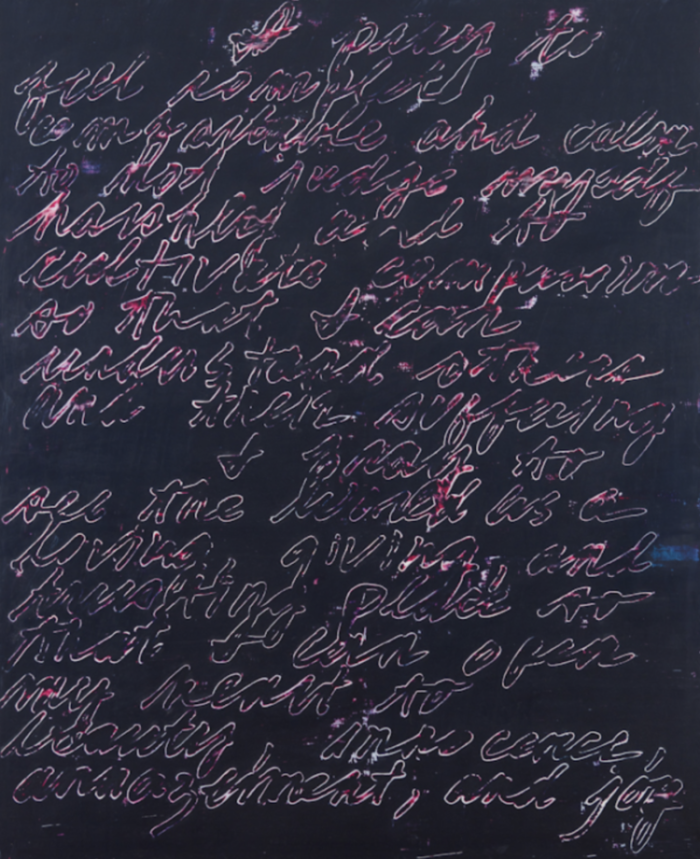 I pray to
feel completely
comfortable and calm
to not judge myself
harshly and to
cultivate compassion
so that I can
understand others
and their suffering
I pray to
see the world as a
loving, giving, and
trusting place so
that I can open
my heart to
beauty, innocence,
amazement, and joy